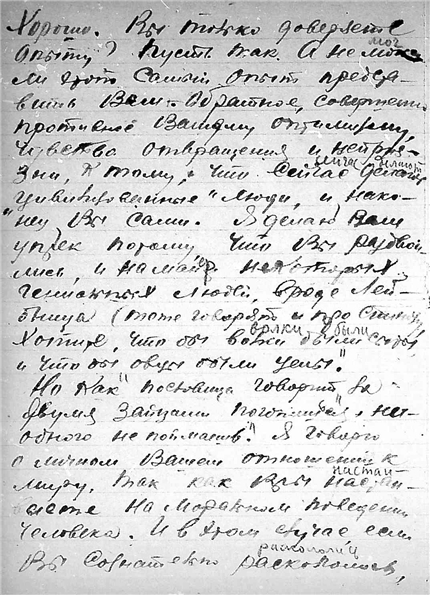 Хорошо. Вы только доверяете
опыту? Пусть так. А не мог
ли этот самый опыт предста-
вить Вам. Обратное, совершенно
противное Вашему оптимизму,
чувства отвращения и неприя-
зни, к тому, что сейчас делают
"цивилизованные" люди, и нако-
нец Вы сами. Я делаю Вам
упрек потому, что Вы раздвои-
лись, и на манер некоторых
гениальных людей, вроде Лей-
бница (тоже говорят и про Спинозу)
Хотите, что бы волки были сыты
и что бы овцы были целы".
Но как "пословица говорит за
двумя зайцами погонишься, ни
одного не поймаешь." Я говорю
о личном Вашем отношении к
миру. Так как Вы настаи-
ваете на моральном поведении
человека. И в этом случае если
Вы сознательно раскололись,